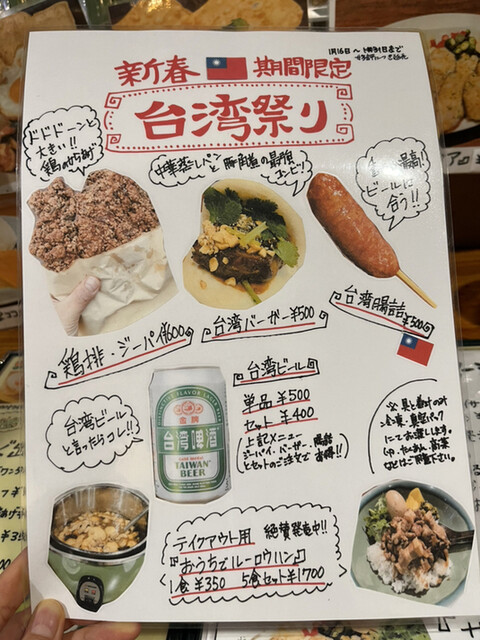 1月16日〜1月31日まで
新春 期間限定
台湾祭り
ドドドーンと
大きい!!
鶏のからあげ
中華蒸しパン
と豚角煮の最強
コンビ!
最高!
ビールに
合う!!
鶏排・ジーパイ ¥600
台湾バーガー ¥500
台湾腸詰
¥500
台湾ビール
と言ったらコレ!!
台湾啤酒
TAIWAN
BEER
台湾ビール
単品 ¥500
セット ¥400
上記メニュー
ジーパイ、バーガー、腸詰
とセットのご注文でお得!!
冷凍・真空パック
にてお渡しします。
テイクアウト用 絶賛発売中!!
『おうちでルーロウハン』
1食 ¥350 5食セット ¥1700